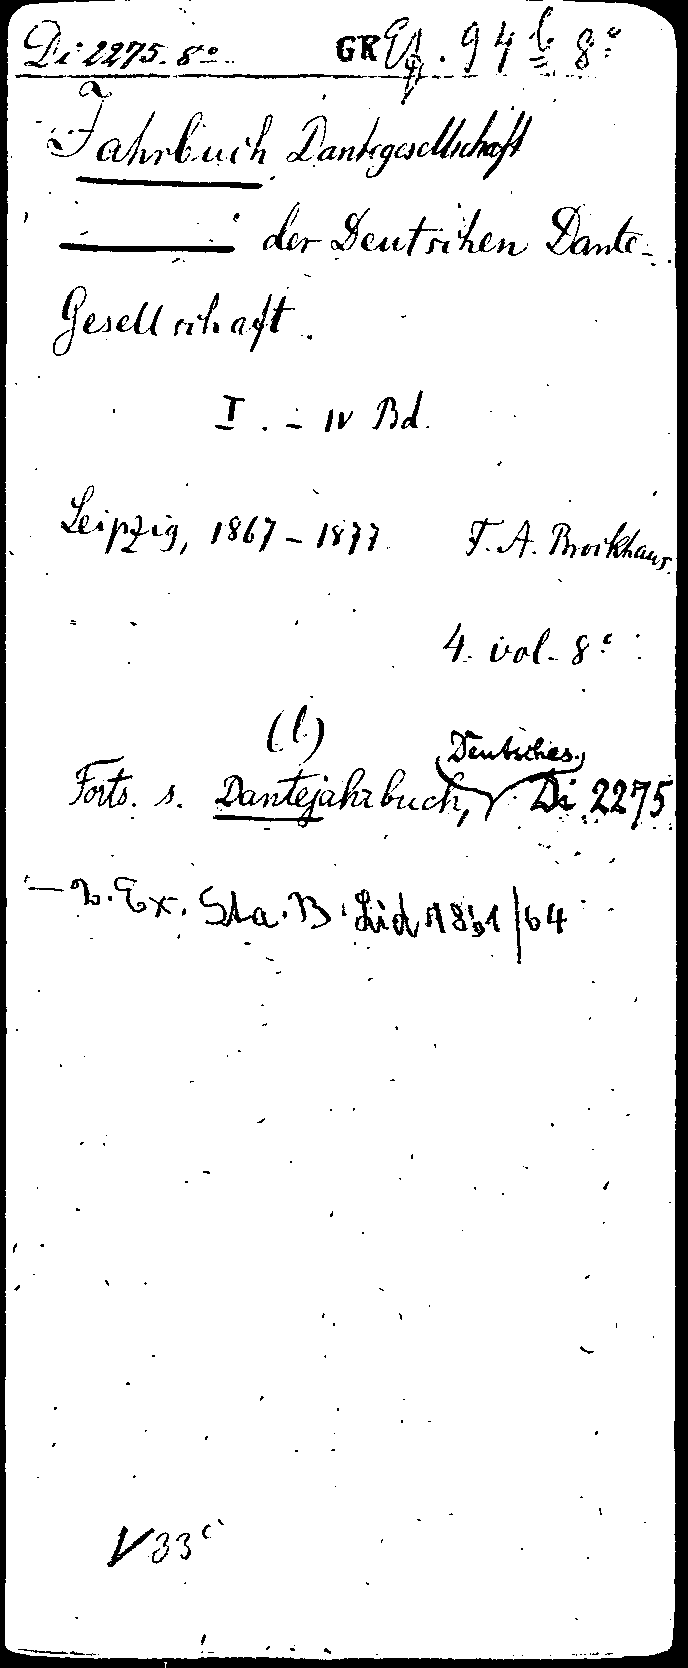 Di 2275. 8° GR Ef. 94 b 8°
Jahrbuch Dantegesellschaft
——— der Deutschen Dante-
Gesellschaft.
I. – IV Bd.
Leipzig, 1867–1877. F. A. Brockhaus.
4. vol. 8°
(l)
Deutsches
Forts. s. Dantejahrbuch, Di 2275
— 2. Ex. Sta. B.
V33c